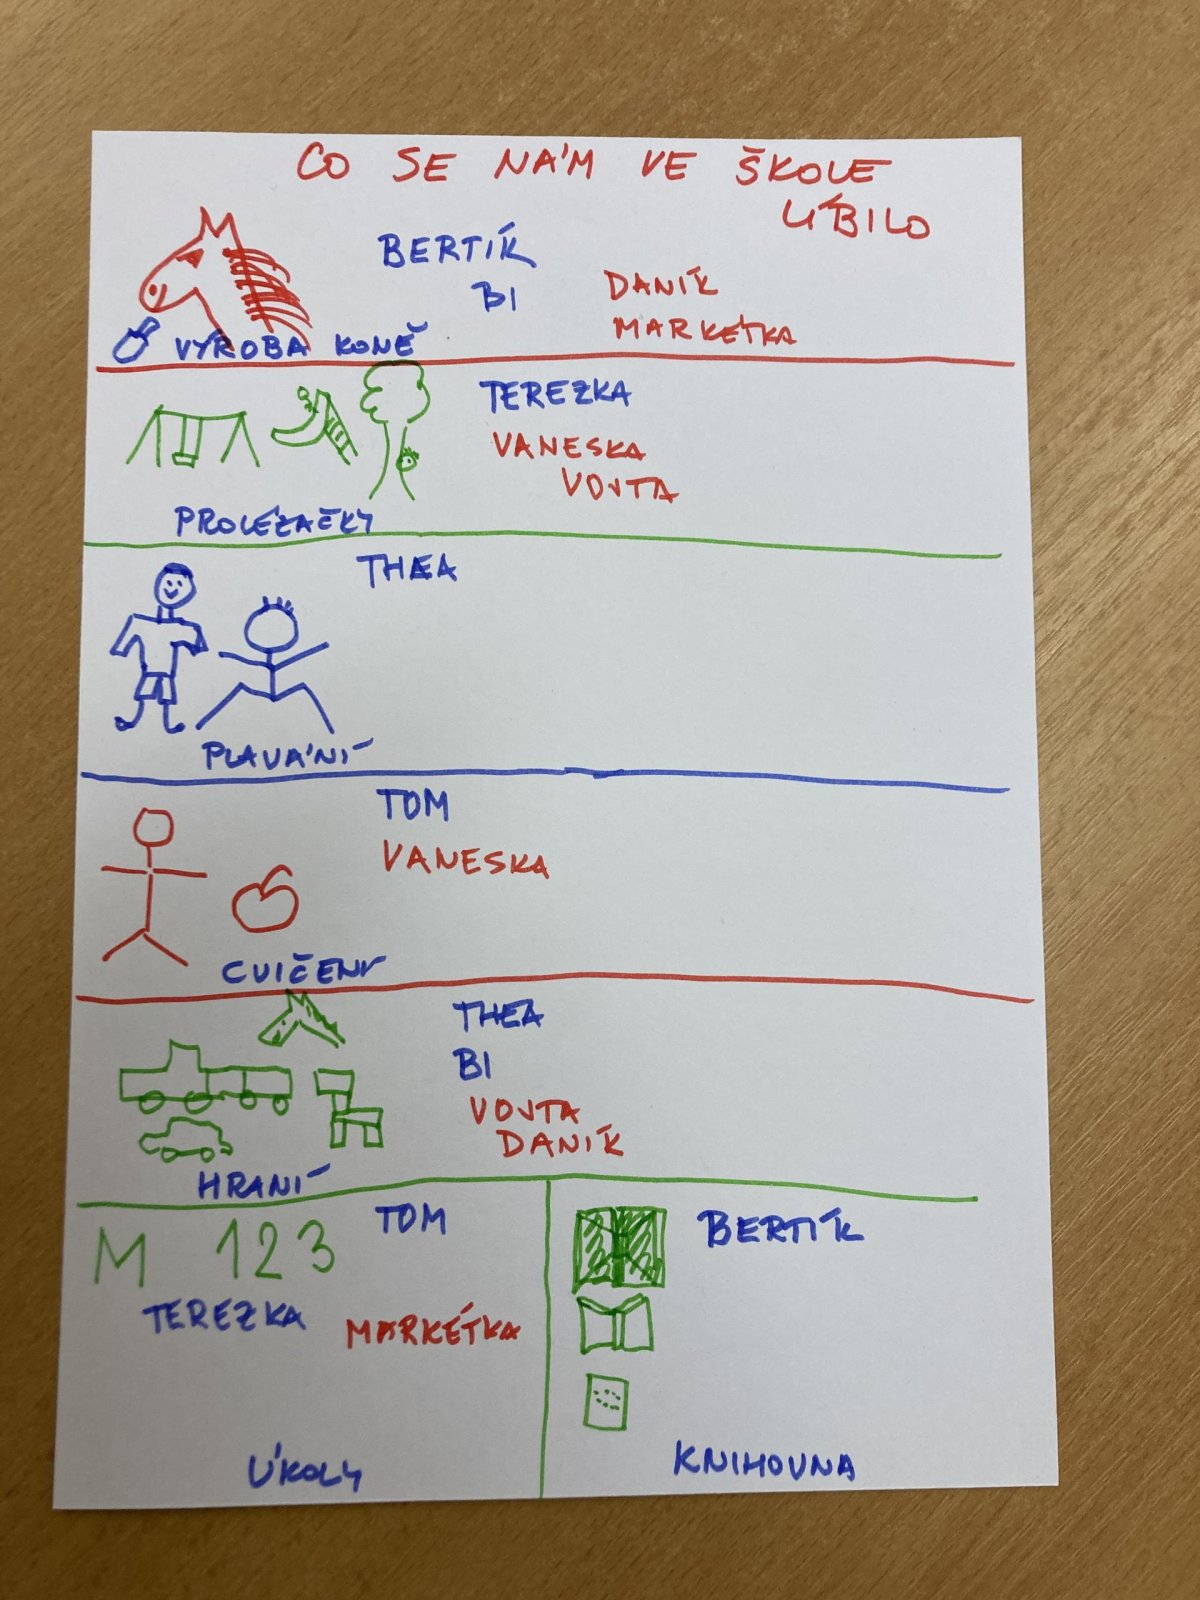 CO SE NÁM VE ŠKOLE
LÍBILO
BERTÍK
BI
DANÍK
MARKÉTKA
VÝROBA KONĚ
TEREZKA
VANESKA
VOJTA
PROLÉZAČKY
THEA
PLAVÁNÍ
TOM
VANESKA
CVIČENÍ
THEA
BI
VOJTA
DANÍK
HRANÍ
M 123
TOM
TEREZKA
MARKÉTKA
ÚKOLY
BERTÍK
KNIHOVNA